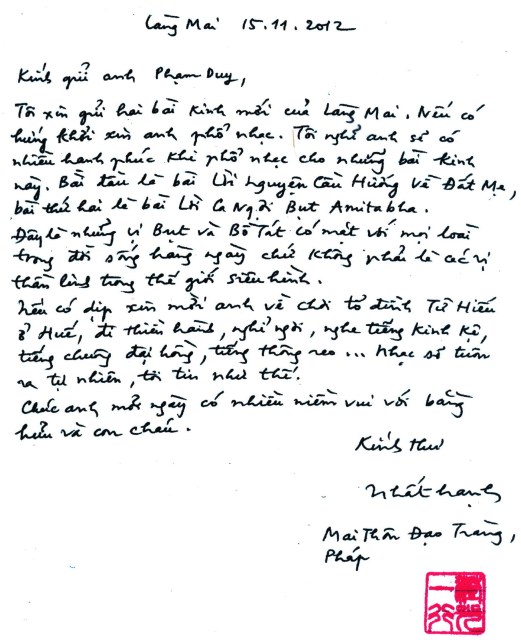 Làng Mai 15.11.2012
Kính gửi anh Phạm Duy,
Tôi xin gửi hai bài kinh mới của Làng Mai. Nếu có
hứng khởi xin anh phổ nhạc. Tôi nghĩ anh sẽ có
nhiều hạnh phúc khi phổ nhạc cho những bài kinh
này. Bài đầu là bài Lời Nguyện Cầu Hướng Về Đất Mẹ,
bài thứ hai là bài Lời Ca Ngợi Bụt Amitabha.
Đây là những vị Bụt và Bồ Tát có mặt với mọi loài
trong đời sống hàng ngày chứ không phải là các vị
thần linh trong thế giới siêu hình.
Nếu có dịp xin mời anh về chơi tổ đình Từ Hiếu
ở Huế, đi thiền hành, nghỉ ngơi, nghe tiếng kinh kệ,
tiếng chuông đại hồng, tiếng thông reo... Nhạc sẽ tuôn
ra tự nhiên, tôi tin như thế.
Chúc anh mỗi ngày có nhiều niềm vui với bằng
hữu và con cháu.
Kính thư
Nhất Hạnh
Mai Thôn Đạo Tràng,
Pháp